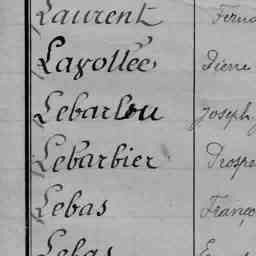 Laurent Ferna
Lavollée Pierre
Lebarlou Joseph
Lebarbier Prospe
Lebas Franço
Lebas